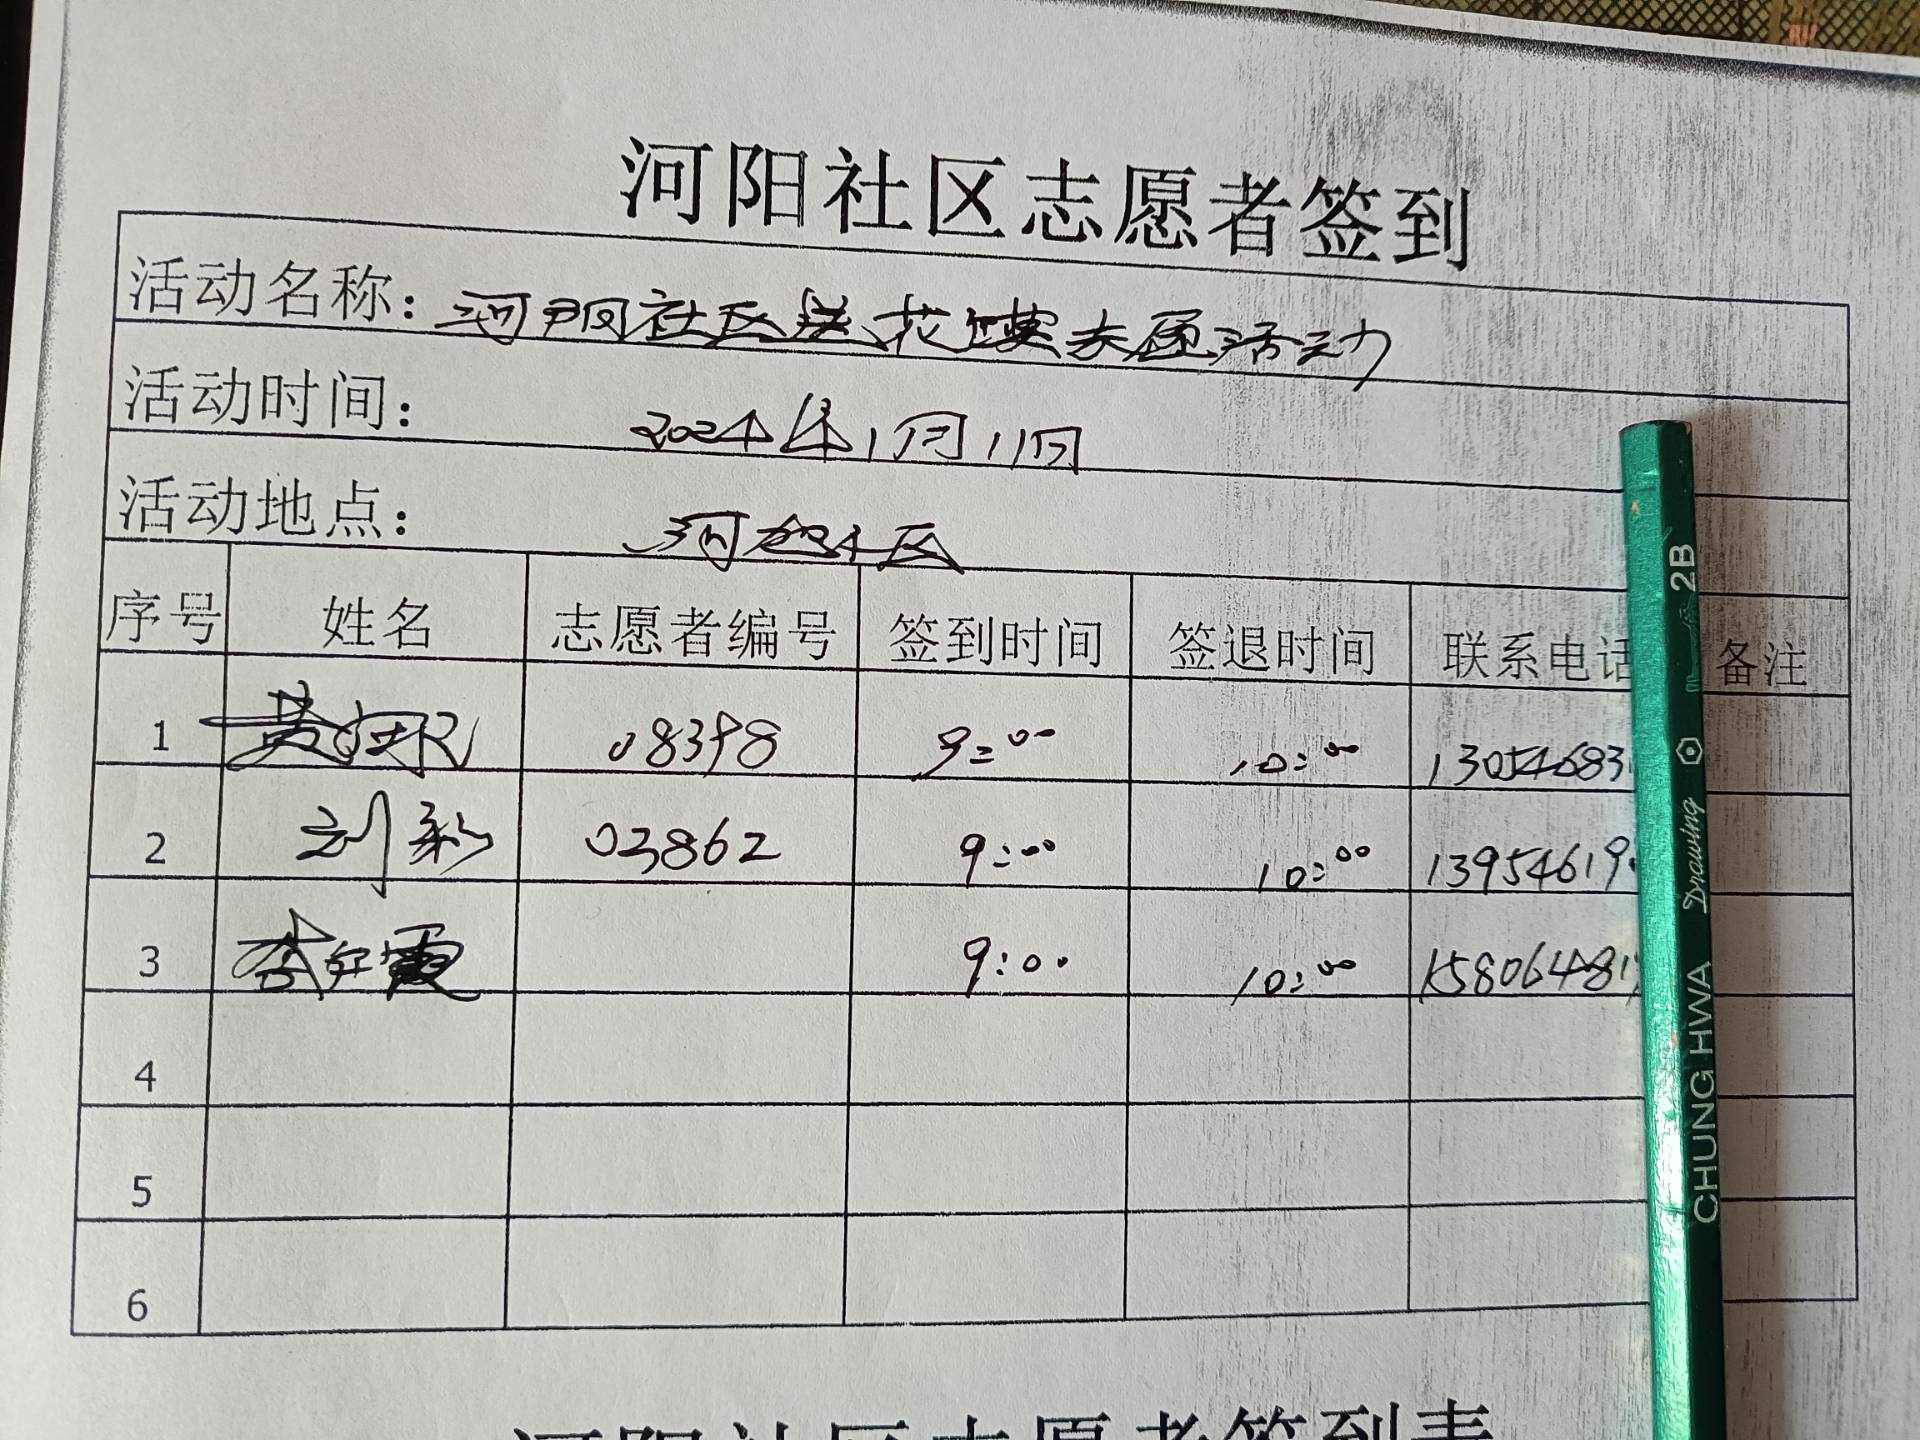 河阳社区志愿者签到
活动名称: 河阳社区送花馍志愿活动
活动时间: 2024年1月11日
活动地点: 河阳社区
序号 姓名 志愿者编号 签到时间 签退时间 联系电话 备注
1 黄 08398 9:00 10:00 13054683
2 刘彩 03862 9:00 10:00 13954619
3 李红霞 9:00 10:00 158064481
4
5
6
河阳社区志愿者签到表
2B
Drawing
CHUNGHWA